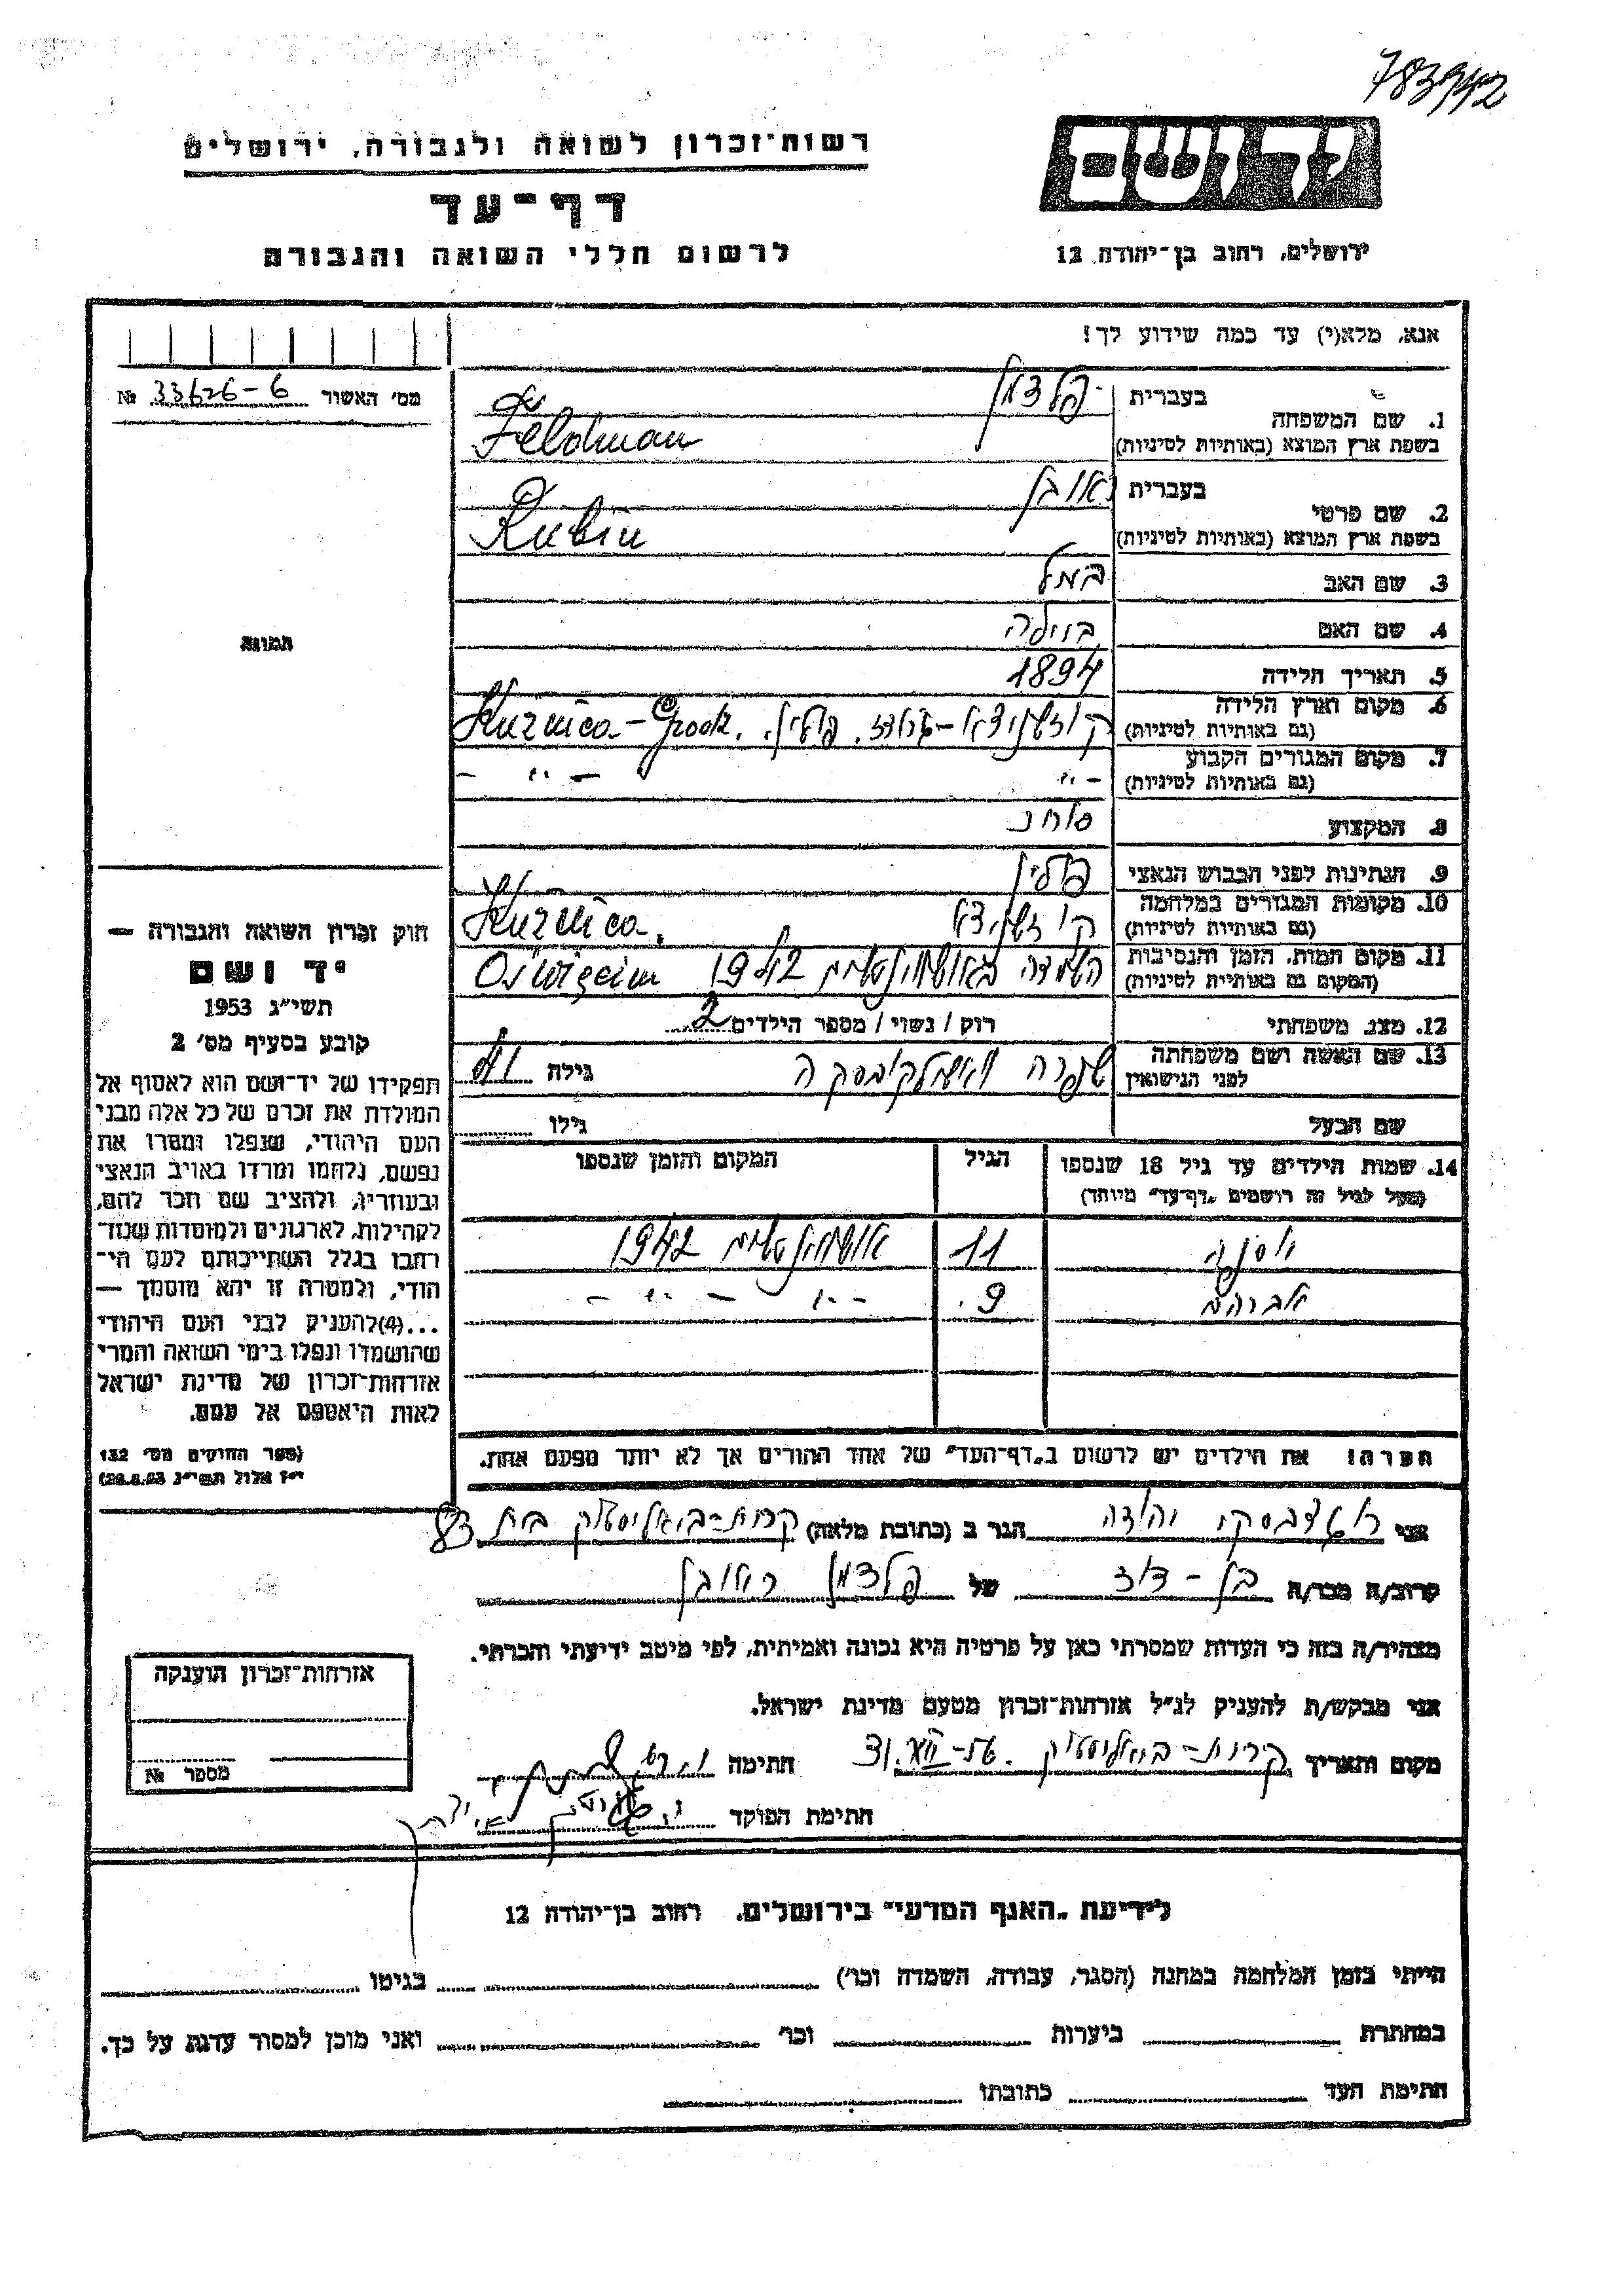 783942
רשות־זכרון לשואה ולגבורה, ירושלים
דף־עד
לרשום חללי השואה והגבורה
ידושם
ירושלים, רחוב בן־יהודה 12
אנא, מלא(י) עד כמה שידוע לך!
מס׳ האשור № 33626-6
1. שם המשפחה
בעברית פלדמן
בשפת ארץ המוצא (באותיות לטיניות) Feldman
2. שם פרטי
בעברית ראובן
בשפת ארץ המוצא (באותיות לטיניות) Rubin
3. שם האב
4. שם האם
5. תאריך הלידה 1894
6. מקום וארץ הלידה (גם באותיות לטיניות) פולין. Kuźnica - Grodz.
7. מקום המגורים הקבוע (גם באותיות לטיניות) - " - - " -
8. המקצוע סוחר
9. הנתינות לפני הכבוש הנאצי פולין
10. מקומות המגורים במלחמה (גם באותיות לטיניות) Kuźnica.
11. מקום המות, הזמן והנסיבות (המקום גם באותיית לטיניות) השמדה באושוויצים 1942 Oświęcim
12. מצב משפחתי רוק / נשוי / מספר הילדים 2
13. שם האשה ושם משפחתה לפני הנישואין שפרה גילה
שם הבעל גילו
14. שמות הילדים עד גיל 18 שנספו הגיל המקום והזמן שנספו
(מעל לגיל זה רושמים „דף־עד״ מיוחד)
11 אושוויצים 1942
אברהם 9. - " - - " -
הערה: את הילדים יש לרשום ב„דף־העד״ של אחד ההורים אך לא יותר מפעם אחת.
תמונה
חוק זכרון השואה והגבורה —
יד ושם
תשי״ג 1953
קובע בסעיף מס׳ 2
תפקידו של יד־ושם הוא לאסוף אל
המולדת את זכרם של כל אלה מבני
העם היהודי, שנפלו ומסרו את
נפשם, נלחמו ומרדו באויב הנאצי
ובעוזריו, ולהציב שם וזכר להם,
לקהילות, לארגונים ולמוסדות שנח־
רבו בגלל השתייכותם לעם הי־
הודי, ולמטרה זו יהא מוסמך —
...(4)להעניק לבני העם היהודי
שהושמדו ונפלו בימי השואה והמרי
אזרחות־זכרון של מדינת ישראל
לאות היאספם אל עמם.
(ספר החוקים מס׳ 132
י״ז אלול תשי״ג 28.8.53)
אני יהודה הגר ב (כתובת מלאה) קרית-ביאליסטוק בית
קרוב/ה מכר/ה בן-דוד של פלדמן ראובן
מצהיר/ה בזה כי העדות שמסרתי כאן על פרטיה היא נכונה ואמיתית, לפי מיטב ידיעתי והכרתי.
אני מבקש/ת להעניק לנ״ל אזרחות־זכרון מטעם מדינת ישראל.
מקום ותאריך קרית-ביאליסטוק. חתימה
חתימת הפוקד
אזרחות־זכרון הוענקה
מספר №
לידיעת „האגף המדעי״ בירושלים, רחוב בן־יהודה 12
הייתי בזמן המלחמה במחנה (הסגר, עבודה, השמדה וכו׳) בגיטו
במחתרת ביערות וכו׳ ואני מוכן למסור עדות על כך.
חתימת העד כתובתו